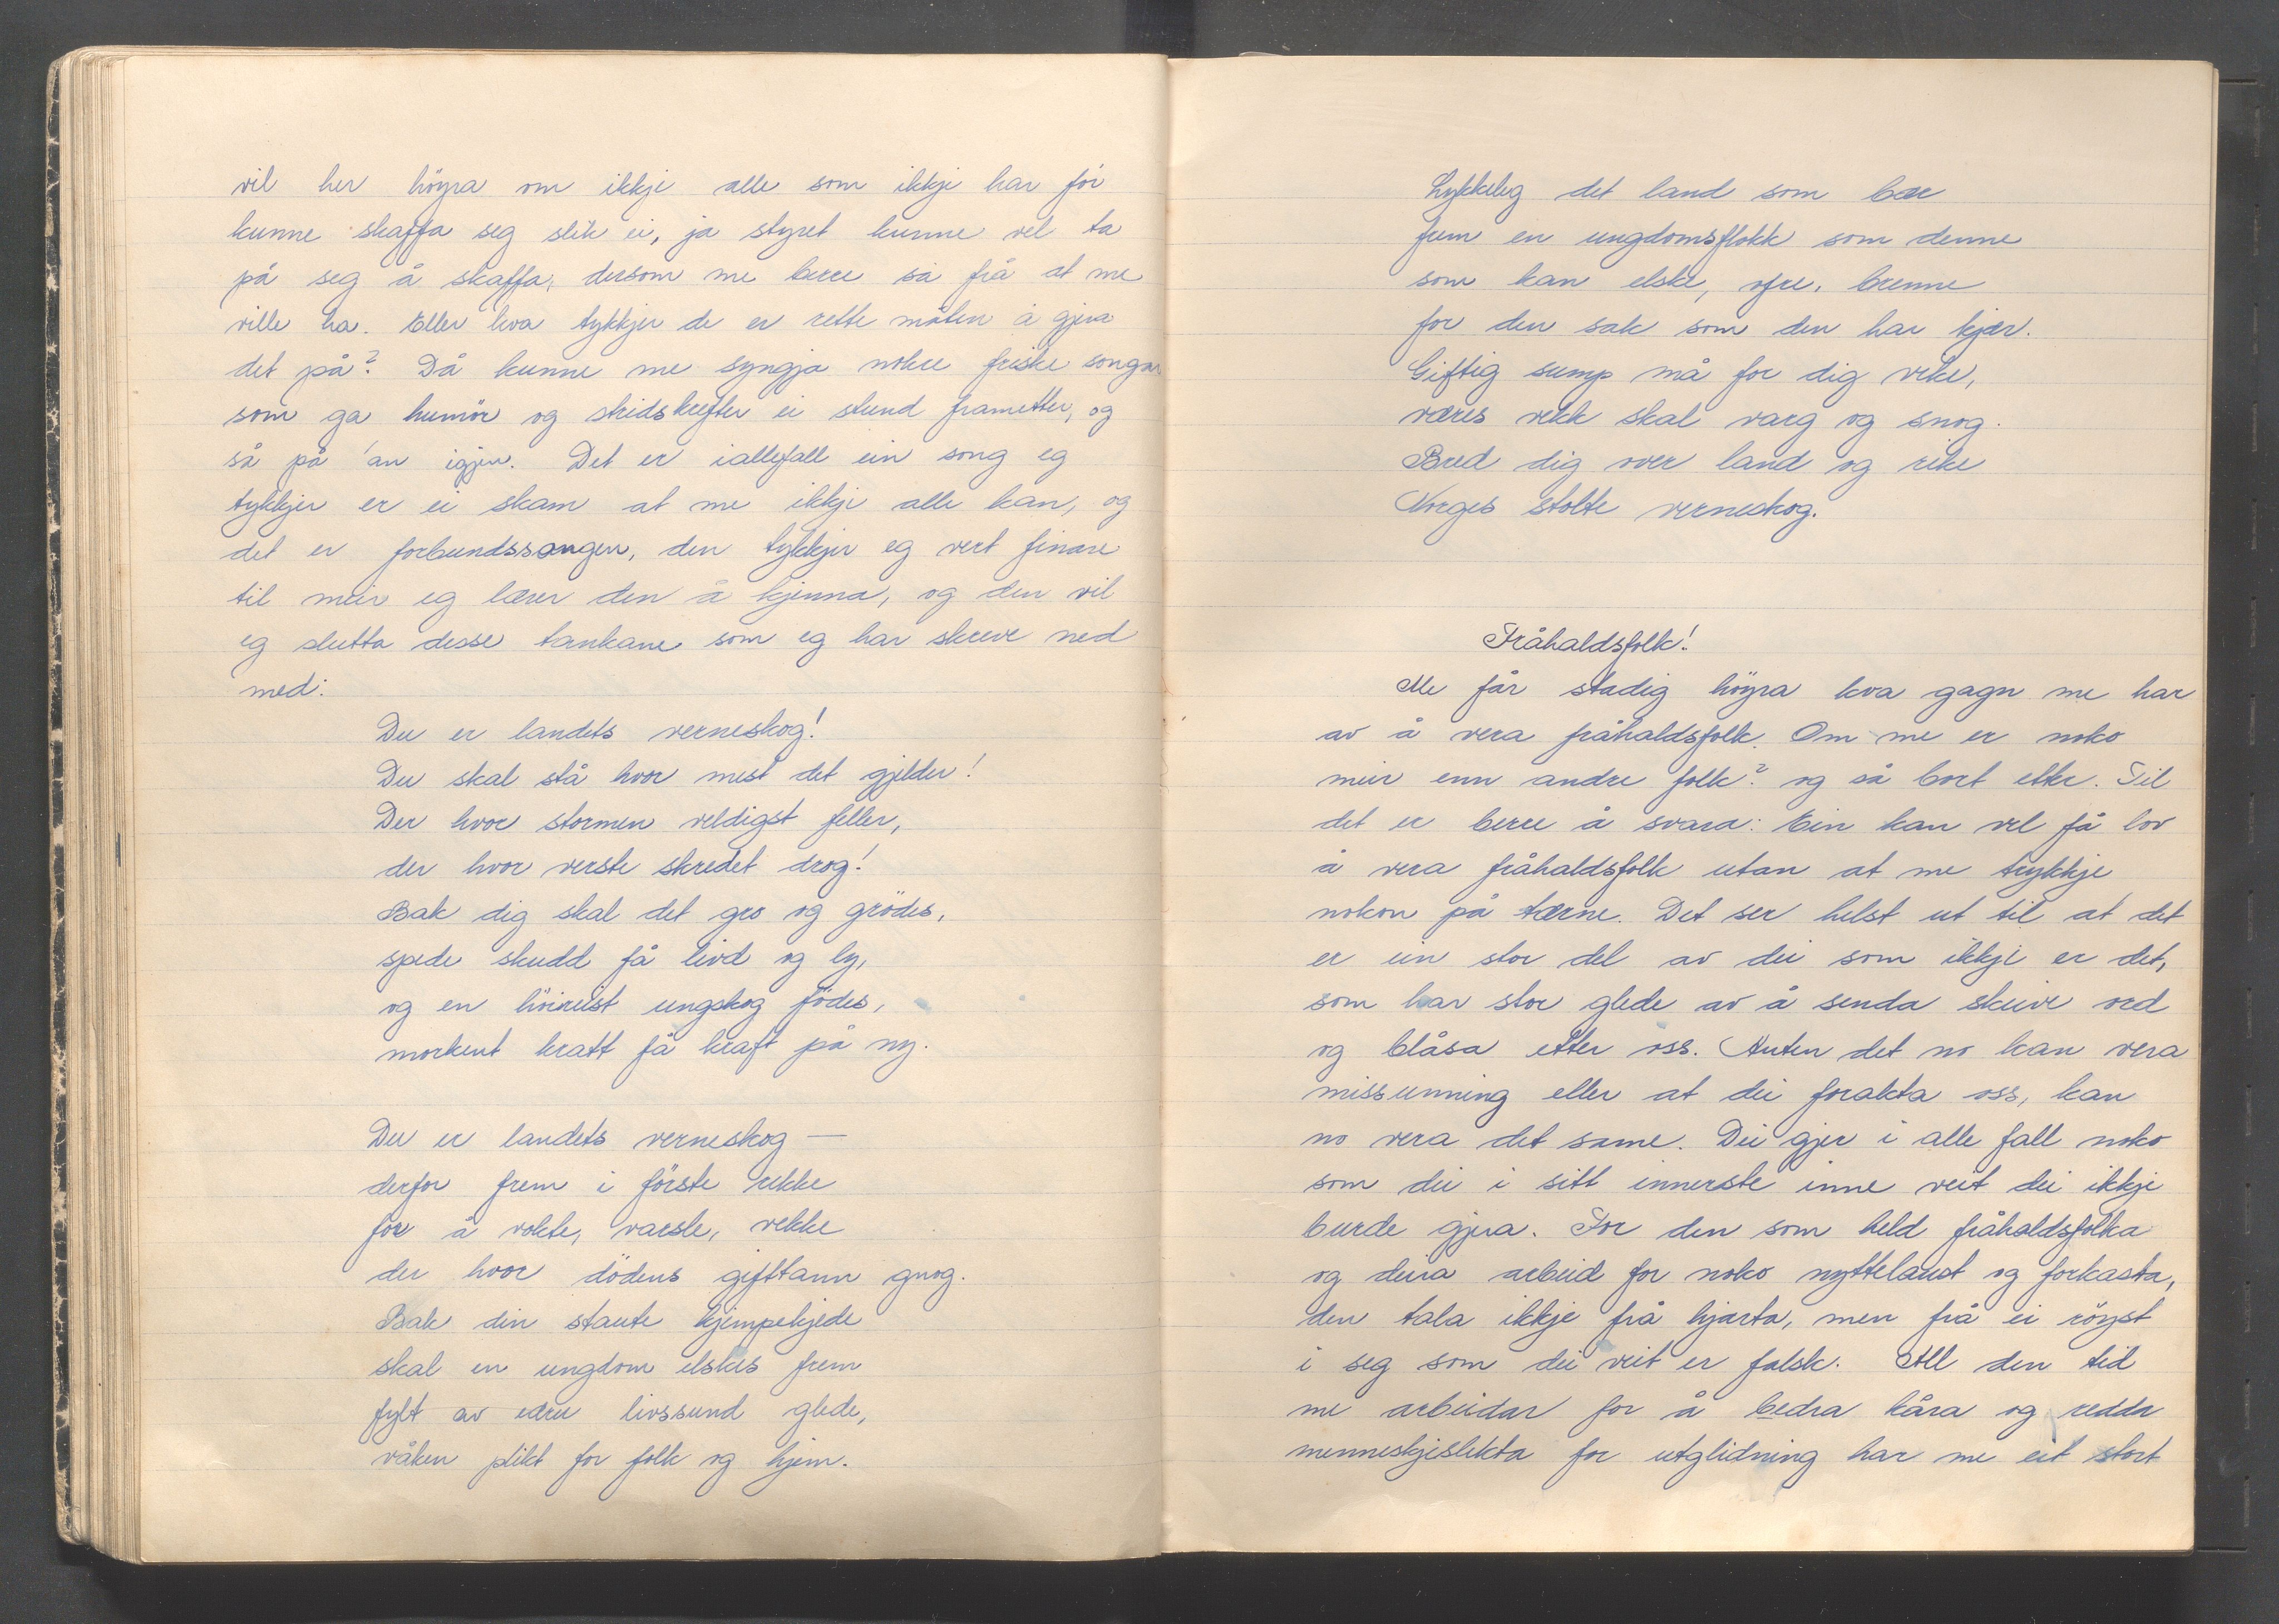 vil her höyra om ikkje alle som ikkje har för
kunne skaffa seg slik ei, ja styret kunne vel ta
på seg å skaffa, dersom me berre sa frå at me
ville ha. Eller kva tykkjer de er rette måten å gjera
det på? Då kunne me syngja nokre friske songar
som ga humör og stridskrefter ei stund frametter, og
så på 'an igjen. Det er iallefall ein song eg
tykkjer er ei skam at me ikkje alle kan, og
det er forbundssongen, den tykkjer eg vert finare
til meir eg lærer den å kjenna, og den vil
eg slutta desse tankane som eg har skreve ned
med:
Du er landets verneskog!
Du skal stå hvor mest det gjelder!
Der hvor stormen veldigst feller,
der hvor verste skredet drog!
Bak dig skal det gro og grödes,
spede skudd få livd og ly,
og en höireist ungskog födes,
morkent kratt få kraft på ny.
Du er landets verneskog —
derfor frem i förste rekke
for å vokte, varsle, vekke
der hvor dödens gifttann gnog.
Bak din staute kjempekjede
skal en ungdom elskes frem
fylt av edru livssund glede,
våken plikt for folk og hjem.
Lykkeleg det land som bær
frem en ungdomsflokk som denne
som kan elske, ofre, brenne
for den sak som den har kjær.
Giftig sump må for dig vike,
væres vekk skal varg og snog.
Bred dig over land og rike
Norges stolte verneskog.
Fråhaldsfolk!
Me får stadig höyra kva gagn me har
av å vera fråhaldsfolk. Om me er noko
meir enn andre folk? og så bort etter. Til
det er berre å svara: Ein kan vel få lov
å vera fråhaldsfolk utan at me trykkje
nokon på tærne. Det ser helst ut til at det
er ein stor del av dei som ikkje er det,
som har stor glede av å senda skeive ord
og blåsa etter oss. Anten det no kan vera
missunning eller at dei forakta oss, kan
no vera det same. Dei gjer i alle fall noko
som dei i sitt innerste inne veit dei ikkje
burde gjera. For den som held fråhaldsfolka
og deira arbeid for noko nyttelaust og forkasta,
den tala ikkje frå hjarta, men frå ei röyst
i seg som dei veit er falsk. All den tid
me arbeidar for å bedra kåra og redda
menneskjeslekta for utglidning har me eit stort